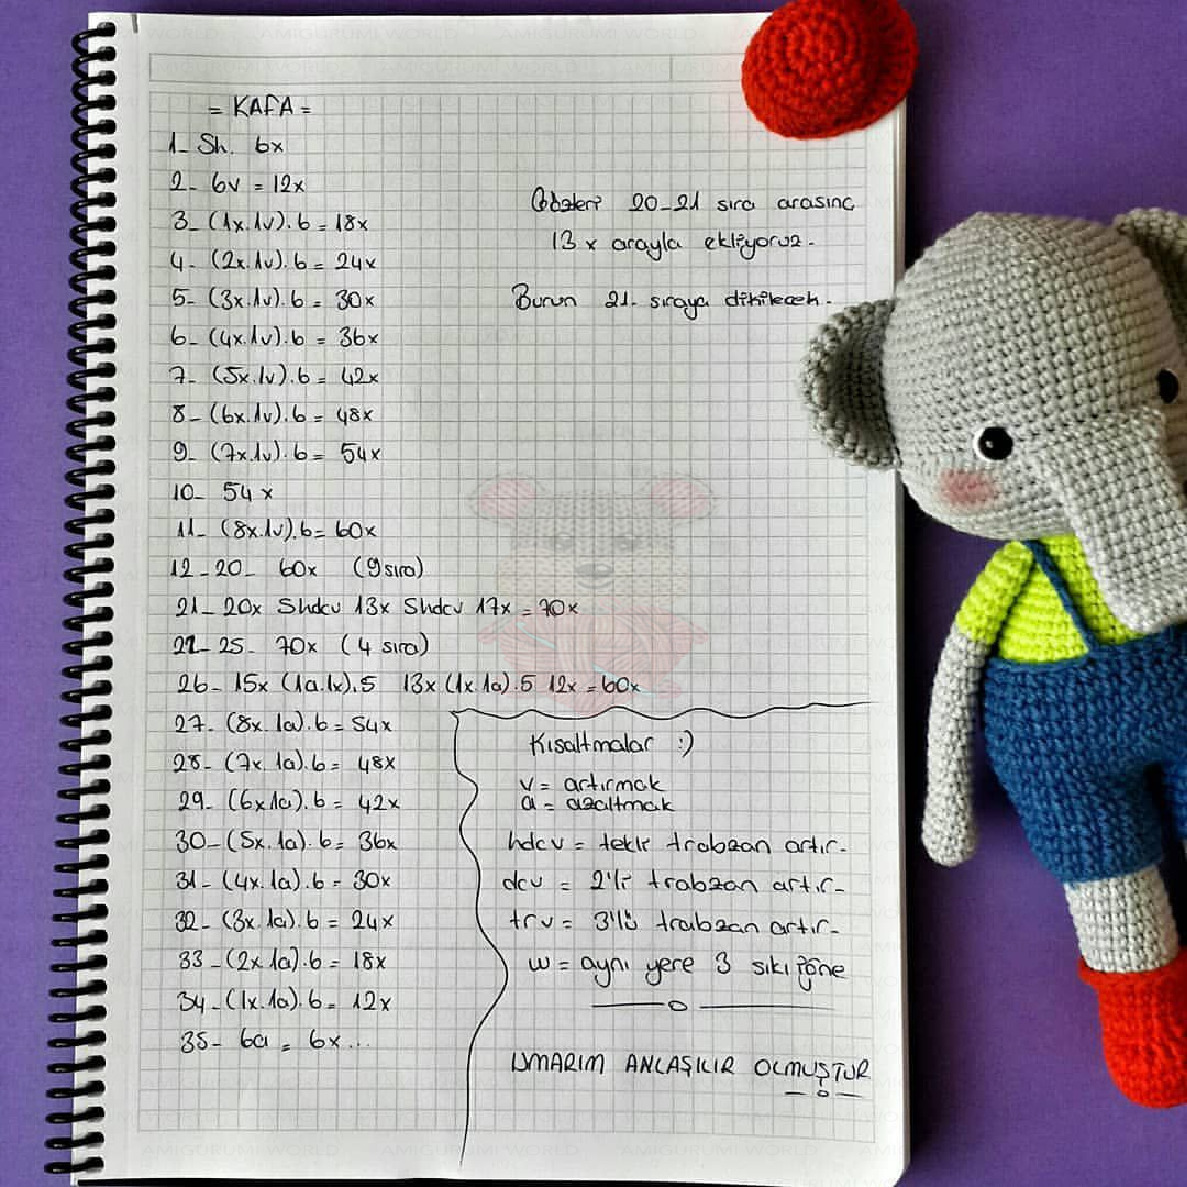 = KAFA =
1- Sh. 6x
2- 6v = 12x
3- (1x.1v).6 = 18x
4- (2x.1v).6 = 24x
5- (3x.1v).6 = 30x
6- (4x.1v).6 = 36x
7- (5x.1v).6 = 42x
8- (6x.1v).6 = 48x
9- (7x.1v).6 = 54x
10- 54x
11- (8x.1v).6 = 60x
12-20- 60x (9 sıra)
21- 20x 5hdcv 13x 5hdcv 17x = 70x
22-25- 70x (4 sıra)
26- 15x (1a.1x).5 13x (1x.1a).5 12x = 60x
27- (8x.1a).6 = 54x
28- (7x.1a).6 = 48x
29- (6x1a).6 = 42x
30- (5x.1a).6 = 36x
31- (4x.1a).6 = 30x
32- (3x.1a).6 = 24x
33- (2x1a).6 = 18x
34- (1x.1a).6 = 12x
35- 6a = 6x...
Gözleri 20-21 sıra arasına
13x arayla ekliyoruz.
Burun 21. sıraya dikilecek.
Kısaltmalar :)
v = artırmak
a = azaltmak
hdcv = tekli trabzan artır-
dcv = 2'li trabzan artır-
trv = 3'lü trabzan artır-
w = aynı yere 3 sık iğne
UMARIM ANLAŞILIR OLMUŞTUR
AMIGURUMI WORLD